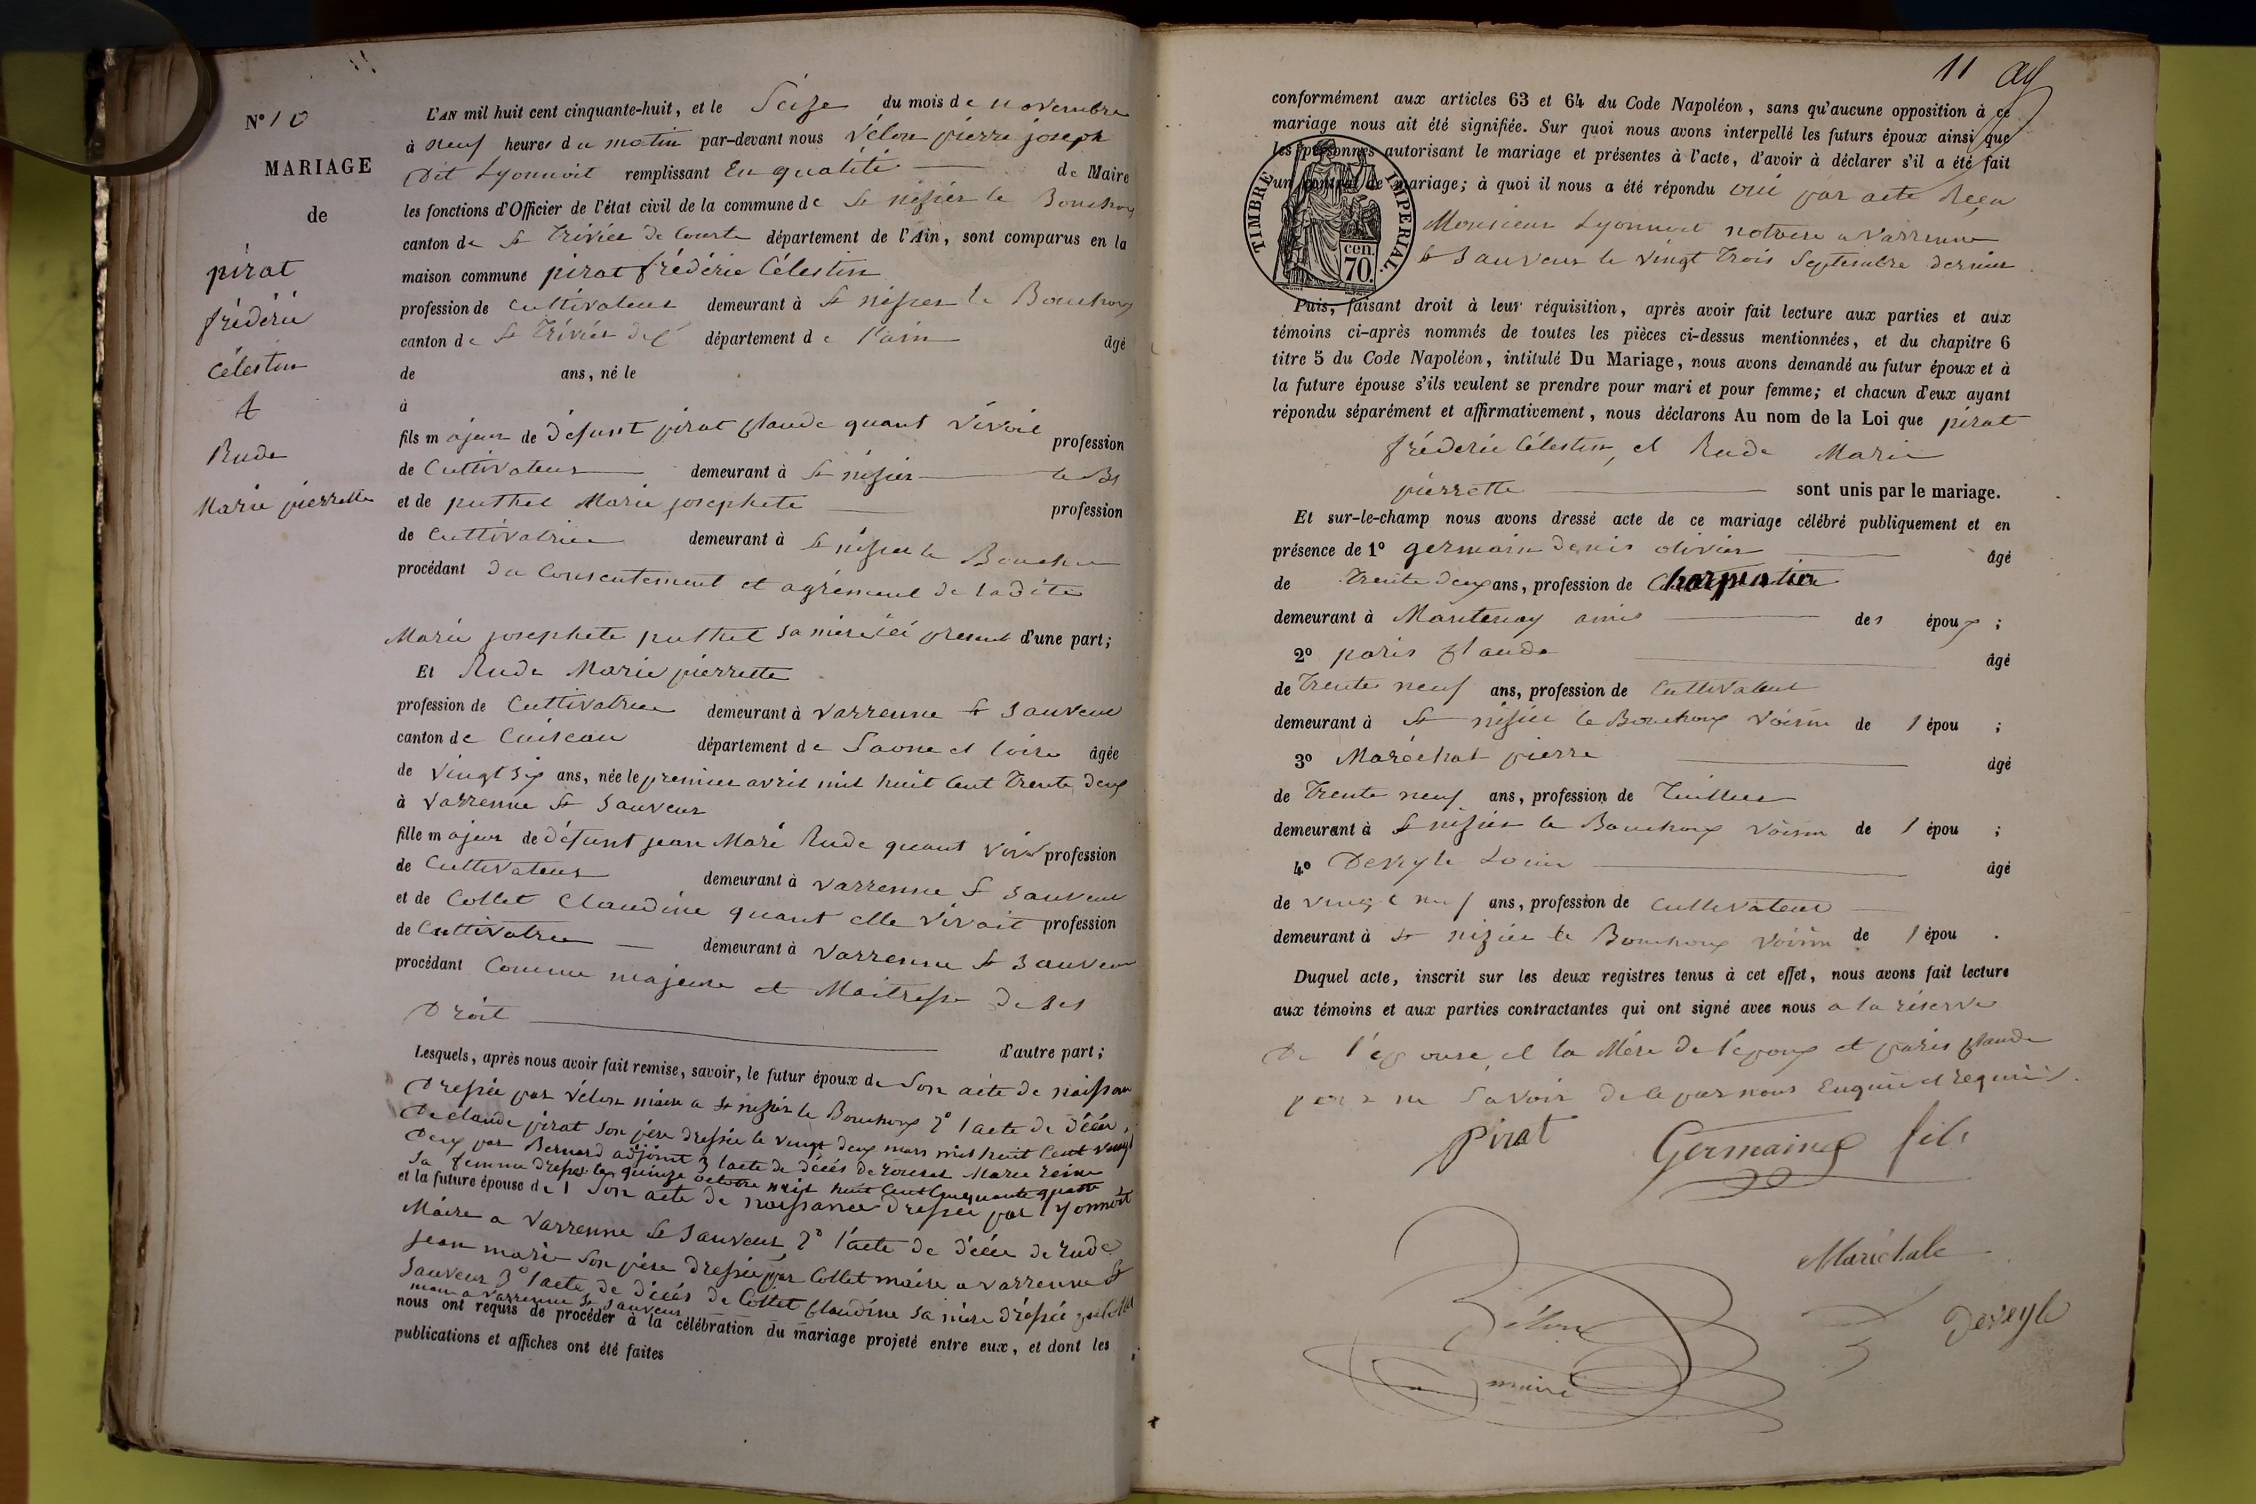 N° 10
MARIAGE
de
pirat
frédéric
Célestin
&
Rude
Marie pierrette
L'AN mil huit cent cinquante-huit, et le Seize du mois de novembre
à neuf heures du matin par-devant nous Vélon pierre joseph
Dit Lyonnoit remplissant En qualité de Maire
les fonctions d'Officier de l'état civil de la commune de St nizier le Bouchoux
canton de St Trivier de Courte département de l'Ain, sont comparus en la
maison commune pirat frédéric Célestin
profession de Cultivateur demeurant à St nizier le Bouchoux
canton de St Trivier de C département de l'ain âgé
de ans, né le
à
fils majeur de défunt pirat Claude quant Vivoit profession
de Cultivateur demeurant à St nizier le Bx
et de puthet Marie josephete profession
de Cultivatrice demeurant à St nizier le Bouchoux
procédant du Consentement et agrément de ladite
Marie josephete puthet sa mère ici present d'une part;
Et Rude Marie pierrette
profession de Cultivatrice demeurant à Varrenne St Sauveur
canton de Cuiseau département de Saone et Loire âgée
de vingt six ans, née le premier avril mil huit Cent Trente deux
à Varrenne St Sauveur
fille majeur de défunt jean Marie Rude quant Vivoit profession
de Cultivateur demeurant à Varrenne St Sauveur
et de Collet Claudine quant elle Vivait profession
de Cultivatrice demeurant à Varrenne St Sauveur
procédant Comme majeure et Maitresse de ses
Droit
d'autre part;
Lesquels, après nous avoir fait remise, savoir, le futur époux de Son acte de naissance
Dressée par Vélon maire a St nizier le Bouchoux 2° l'acte de décés
De claude pirat Son père dressée le vingt deux mars mil huit Cent vingt
Deux par Bernard adjoint 3 l'acte de décés de Marie reine
Sa femme dressé le quinze octobre mil huit Cent Cinquante quatre
et la future épouse de 1 Son acte de naissance dressée par Lyonnoit
Maire a Varrenne St Sauveur 2° l'acte de décée de rude
jean marie Son père dressée par Collet maire a Varrenne St
Sauveur 3° l'acte de décés de Collet Claudine sa mère dréssée par Collet
maire a Varrenne St Sauveur
nous ont requis de procéder à la célébration du mariage projeté entre eux, et dont les
publications et affiches ont été faites
11
conformément aux articles 63 et 64 du Code Napoléon, sans qu'aucune opposition à ce
mariage nous ait été signifiée. Sur quoi nous avons interpellé les futurs époux ainsi que
les personnes autorisant le mariage et présentes à l'acte, d'avoir à déclarer s'il a été fait
un contrat de mariage; à quoi il nous a été répondu oui par acte Reçu
Monsieur Lyonnoit notaire a Varrenne
St Sauveur le vingt Trois Septembre dernier
TIMBRE IMPÉRIAL.
cen.
70
Puis, faisant droit à leur réquisition, après avoir fait lecture aux parties et aux
témoins ci-après nommés de toutes les pièces ci-dessus mentionnées, et du chapitre 6
titre 5 du Code Napoléon, intitulé Du Mariage, nous avons demandé au futur époux et à
la future épouse s'ils veulent se prendre pour mari et pour femme; et chacun d'eux ayant
répondu séparément et affirmativement, nous déclarons Au nom de la Loi que pirat
fréderic Célestin, et Rude Marie
pierrette sont unis par le mariage.
Et sur-le-champ nous avons dressé acte de ce mariage célébré publiquement et en
présence de 1° germain denis olivier âgé
de Trente deux ans, profession de Charpentier
demeurant à Mantenay amis des époux ;
2° paris Claude âgé
de Trente neuf ans, profession de Cultivateur
demeurant à St nizier le Bouchoux Voisin de l épou ;
3° Maréchal pierre âgé
de Trente neuf ans, profession de Tuillier
demeurant à St nizier le Bouchoux Voisin de l épou ;
4° Deveyle Louis âgé
de vingt neuf ans, profession de Cultivateur
demeurant à St nizier le Bouchoux Voisin de l épou .
Duquel acte, inscrit sur les deux registres tenus à cet effet, nous avons fait lecture
aux témoins et aux parties contractantes qui ont signé avec nous a la réserve
De l'épouse, et la Mère de l'époux et paris Claude
pour ne Savoir de le par nous Enquis et requis.
Pirat Germain fils
Maréchale
Vélon
Deveyle
maire